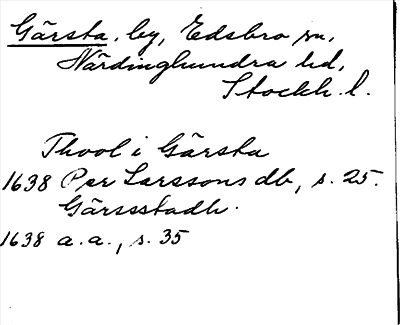 Gärsta, by, Edsbro sn,
Närdinghundra hd,
Stockh. l.
Thool i Gärsta
1638 Per Larssons db, s. 25.
Gärsstadh.
1638 a.a., s. 35